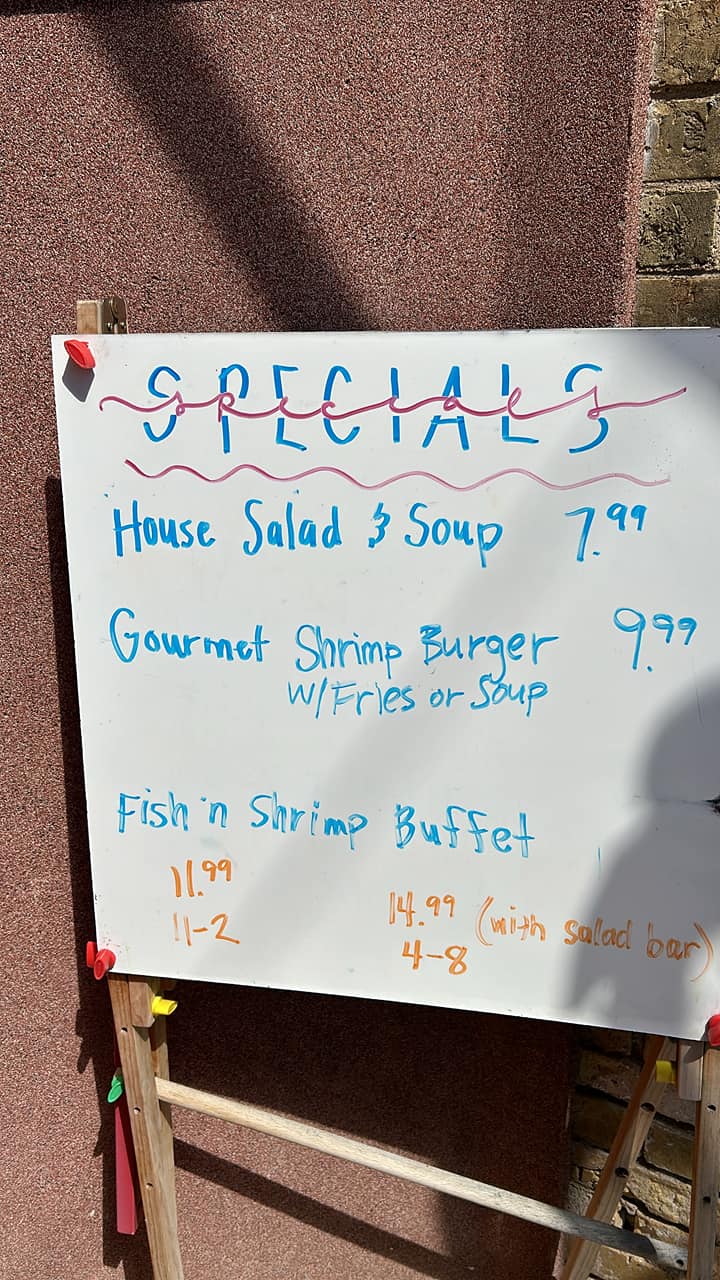 SPECIALS
specials
House Salad & Soup 7.99
Gourmet Shrimp Burger 9.99
w/Fries or Soup
Fish 'n Shrimp Buffet
11.99 14.99 (with salad bar)
11-2 4-8